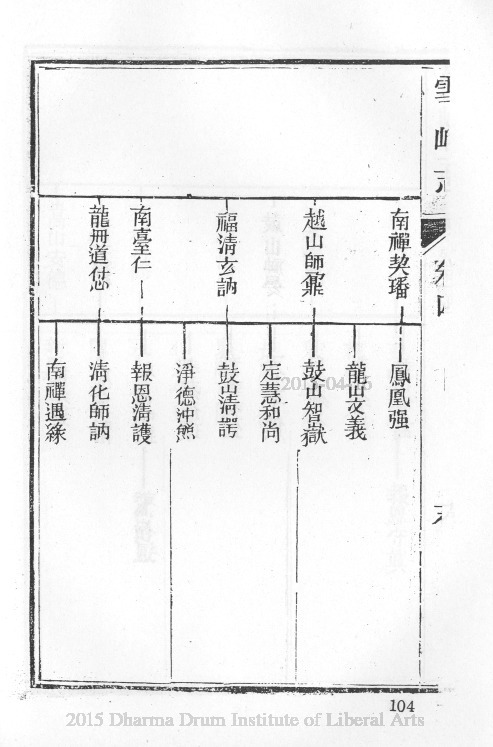 雪峰志
卷四
南禪契璠
越山師鼐
福清玄訥
南臺仁
龍冊道怤
鳳凰强
龍山文義
鼓山智嶽
定慧和尚
鼓山清諤
淨德沖煦
報恩清護
清化師訥
南禪遇緣
104
2015 Dharma Drum Institute of Liberal Arts